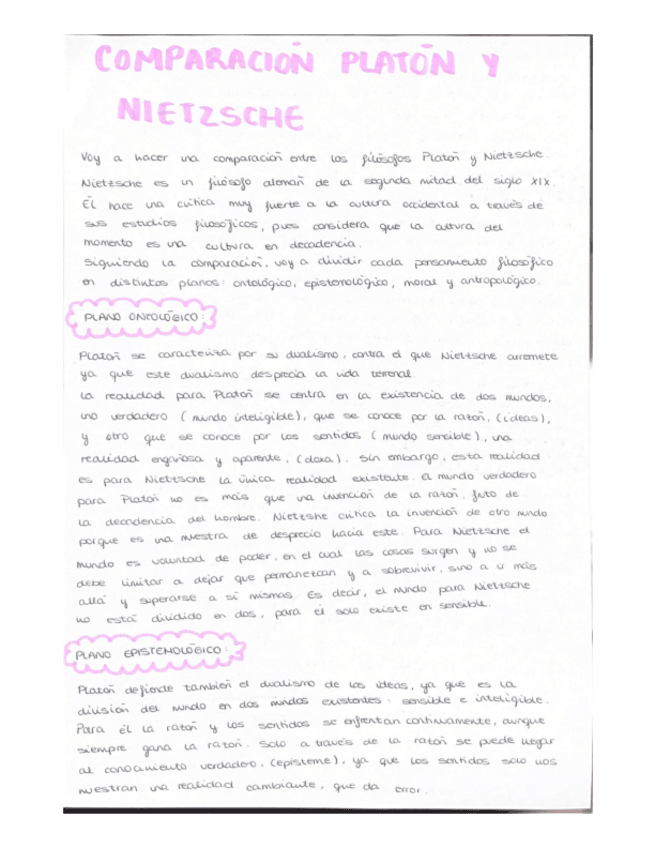 COMPARACIÓN PLATÓN Y
NIETZSCHE
Voy a hacer una comparación entre los filósofos Platón y Nietzsche.
Nietzsche es un filósofo alemán de la segunda mitad del siglo XIX.
Él hace una crítica muy fuerte a la cultura occidental a través de
sus estudios filosóficos, pues considera que la cultura del
momento es una cultura en decadencia.
Siguiendo la comparación, voy a dividir cada pensamiento filosófico
en distintos planos: ontológico, epistemológico, moral y antropológico.
PLANO ONTOLÓGICO:
Platón se caracteriza por su dualismo, contra el que Nietzsche arremete
ya que este dualismo desprecia la vida terrenal.
La realidad para Platón se centra en la existencia de dos mundos,
uno verdadero (mundo inteligible), que se conoce por la razón, (ideas),
y otro que se conoce por los sentidos (mundo sensible), una
realidad engañosa y aparente, (doxa). Sin embargo, esta realidad
es para Nietzsche la única realidad existente. El mundo verdadero
para Platón no es más que una invención de la razón, fruto de
la decadencia del hombre. Nietzshe critica la invención de otro mundo
porque es una muestra de desprecio hacia este. Para Nietzsche el
mundo es voluntad de poder, en el cual las cosas surgen y no se
debe limitar a dejar que permanezcan y a sobrevivir, sino a ir más
allá y superarse a sí mismas. Es decir, el mundo para Nietzsche
no está dividido en dos, para él solo existe en sensible.
PLANO EPISTEMOLÓGICO:
Platón defiende también el dualismo de las ideas, ya que es la
división del mundo en dos mundos existentes: sensible e inteligible.
Para él la razón y los sentidos se enfrentan continuamente, aunque
siempre gana la razón. Solo a través de la razón se puede llegar
al conocimiento verdadero, (episteme), ya que los sentidos solo nos
muestran una realidad cambiante, que da error.